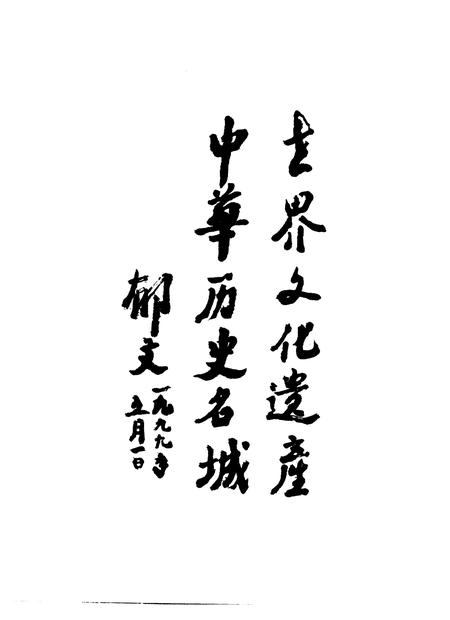 世界文化遗產
中華历史名城
郁文
一九九九年
五月一日